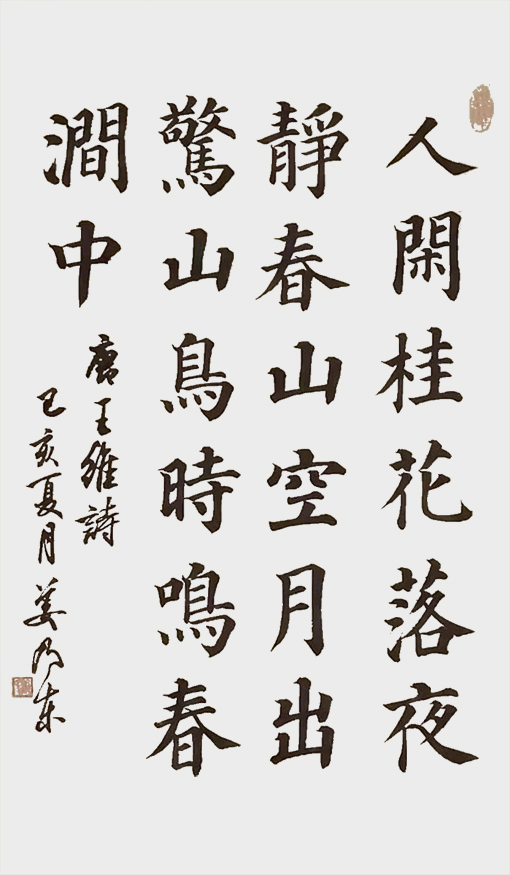 人閑桂花落夜
靜春山空月出
驚山鳥時鳴春
澗中
唐王維詩
己亥夏月姜乃東